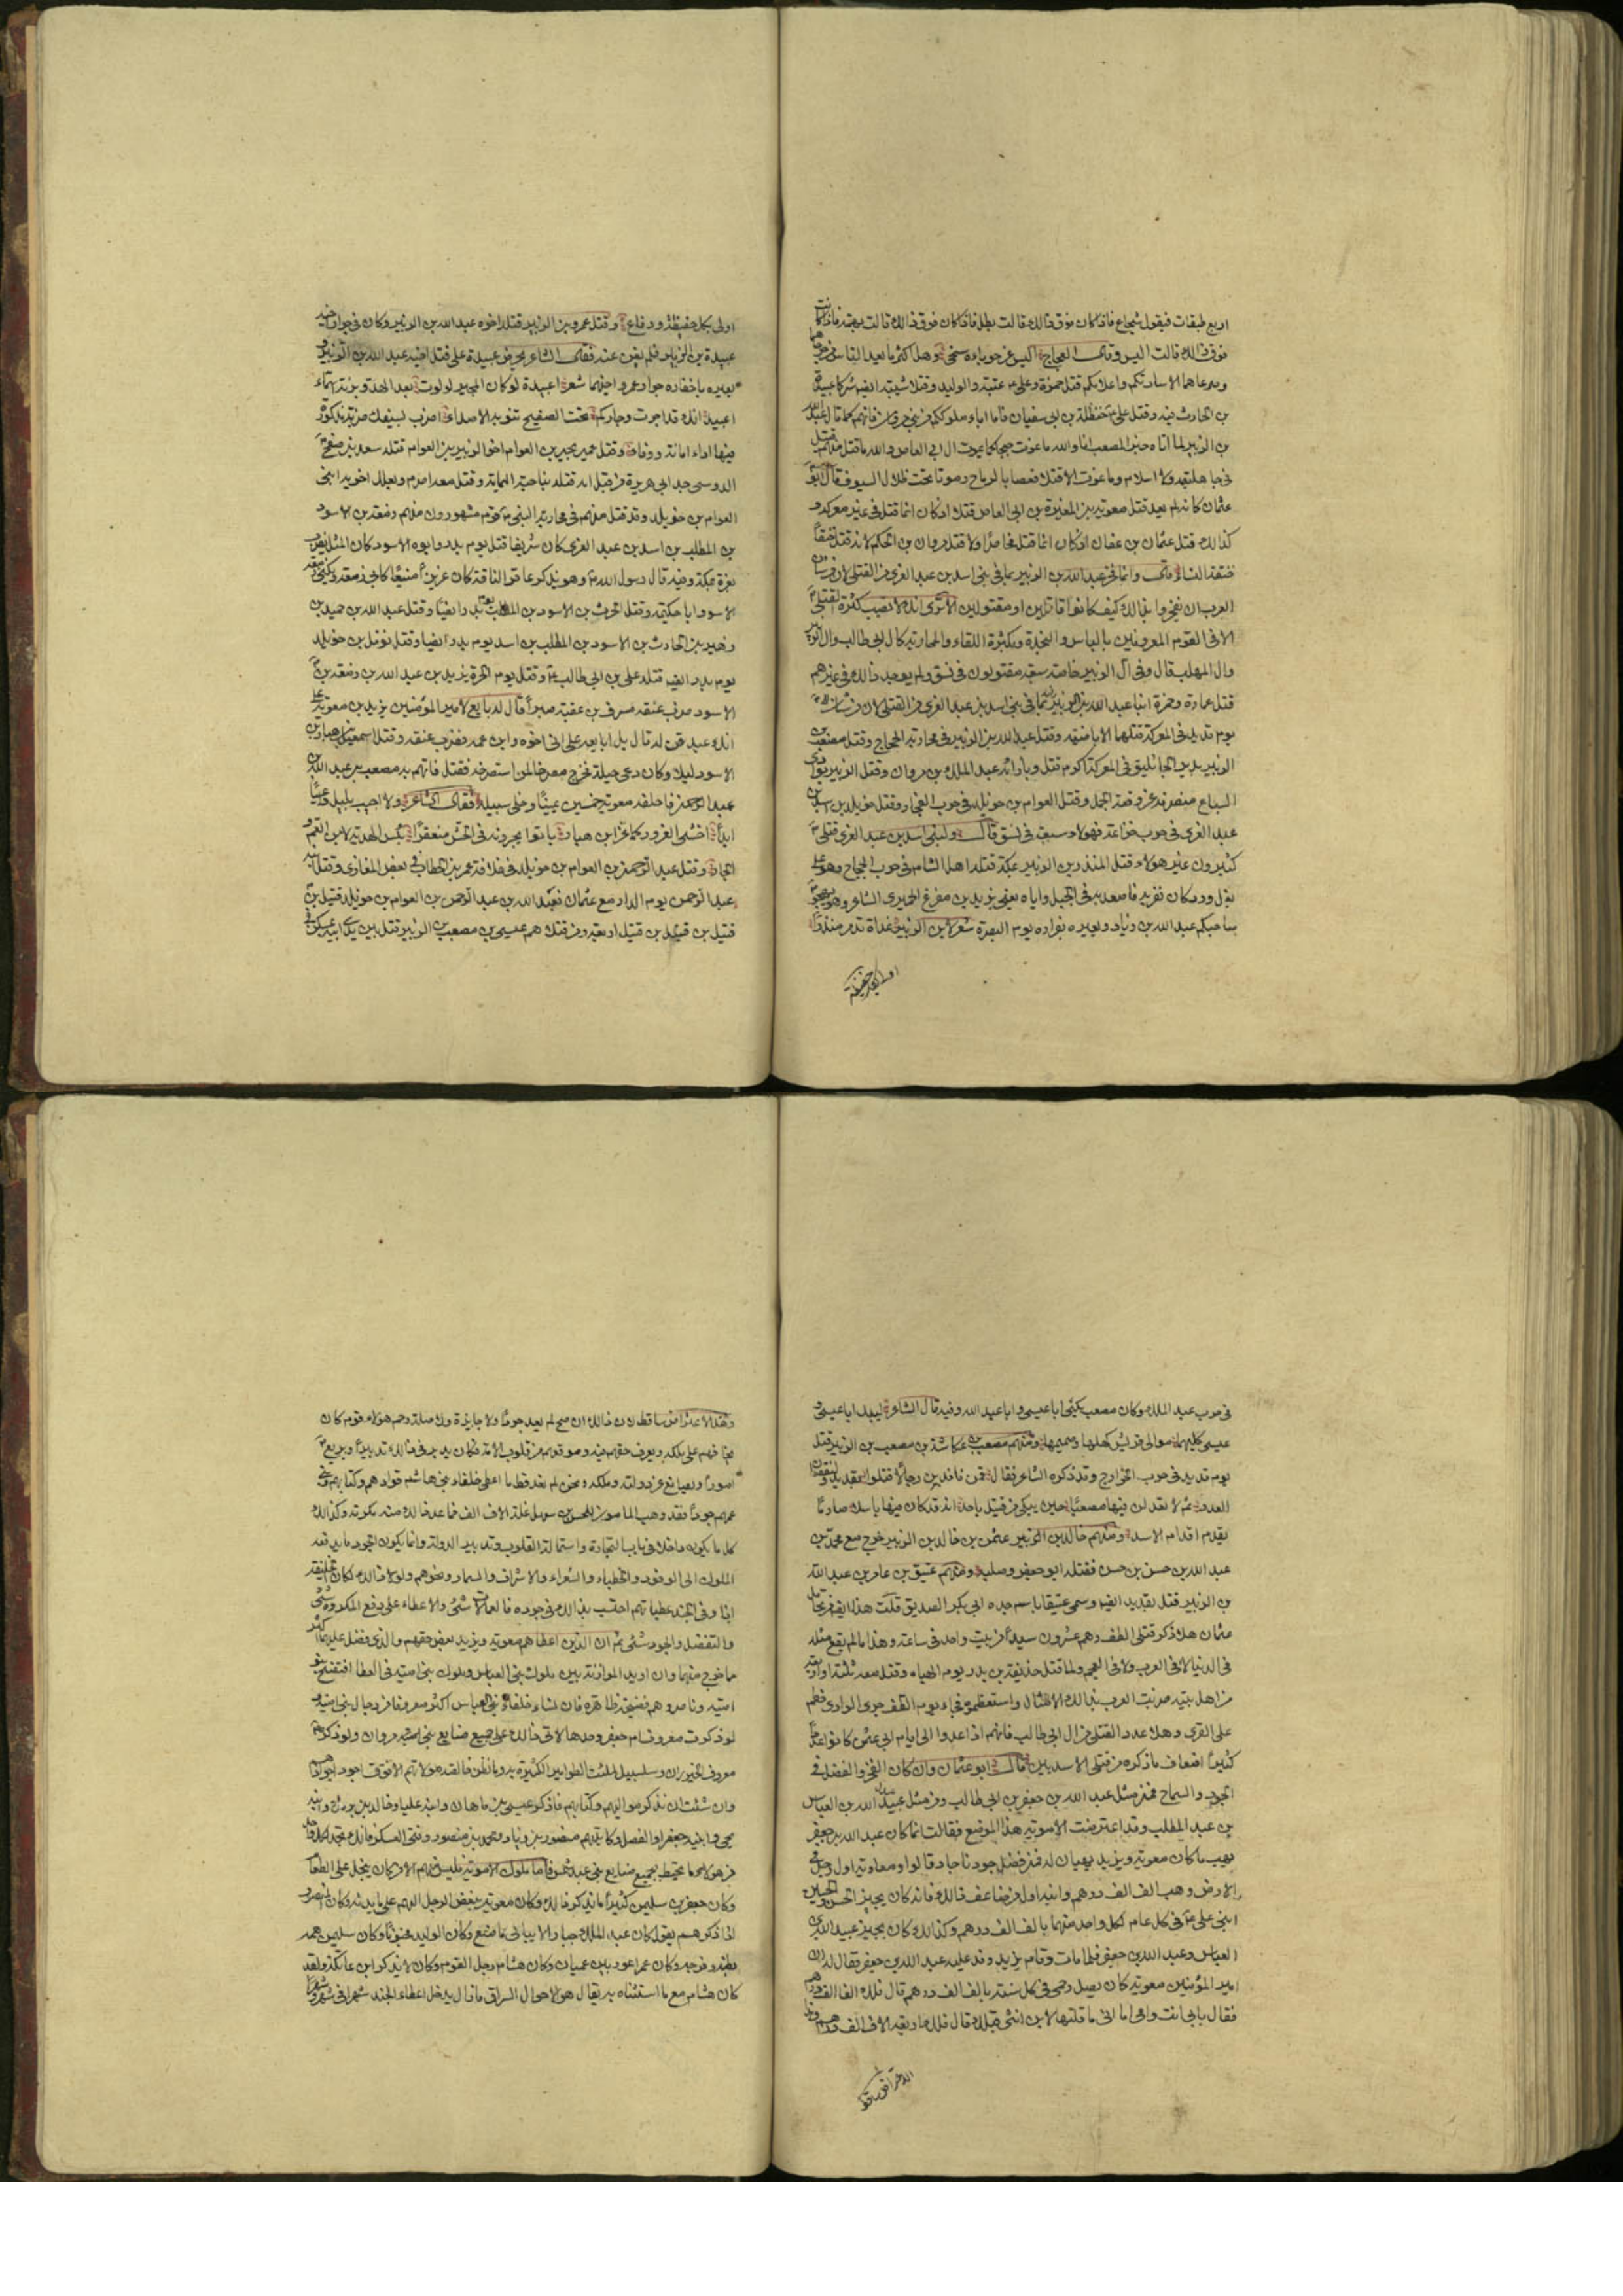 اربع طبقات فيقول شجاع فاذا كان فوق ذالك قالت بطل فاذا كان فوق ذالك قالت بهمة فاذا كانت
فوق ذالك قالت اليس وقال العجاج اليس عن حوبائه سخي وهل اكثر ما يعد الناس من
وصدعاهما الا ساداتكم واعلامكم قتل حمزة وعلي عتبة والوليد وقتلا شيبة ايضا شركا عبيدة
بن الحارث فيه وقتل علي حنظلة بن ابي سفيان فاما اباء ملوككم من بني مروان فانهم كما قال عبد الله
بن الزبير لما اتاه خبر المصعب انا والله ما نموت حبجا كما يموت ال ابي العاص والله ما قتل منهم قتيل
في جاهلية ولا اسلام وما نموت الا قتلا قعصا بالرماح وموتا تحت ظلال السيوف قال ابو
عثمان كانه لم يعد قتل معوية بن المغيرة بن ابي العاص قتلا اذ كان انما قتل في غير معركة و
كذالك قتل عثمان بن عفان اذ كان انما قتل محاصرا ولا قتل مروان بن الحكم لانه قتل خنقا
خنقته النساء قال وانما فخر عبد الله بن الزبير بما في بني اسد بن عبد العزى من القتلى لان من شان
العرب ان يفخروا بذالك كيف كانوا قاتلين او مقتولين الا ترى انك لا تصيب كثرة القتلى
الا في القوم المعروفين بالباس والنجدة وبكثرة اللقاء والمحاربة كال ابي طالب وال الزبير
وال المهلب قال وفي آل الزبير خاصة سبعة مقتولون في نسق ولم يوجد ذالك في غيرهم
قتل عمارة وحمزة ابنا عبد الله بن الزبير
يوم قديد في المعركة قتلهما الاباضية وقتل عبد الله بن الزبير في محاربة الحجاج وقتل مصعب بن
الزبير بدير الجاثليق في المعركة اكرم قتل وبازائه عبد الملك بن مروان وقتل الزبير بوادي
السباع منصرفه عن وقعة الجمل وقتل العوام بن خويلد في حرب الفجار وقتل خويلد بن اسد بن
عبد العزى في حرب خزاعة فهولاء سبعة في نسق قال وفي بني اسد بن عبد العزى قتلى
كثيرون غير هولاء قتل المنذر بن الزبير بمكة قتله اهل الشام في حرب الحجاج وهو على
بغل ورد كان نفر به فاصعد به في الجبل واياه يعني يزيد بن مفرغ الحميري الشاعر وهو يهجو
صاحبكم عبد الله بن زياد ويعيره بفراره يوم البصرة شعر لابن الزبير غداة تدمر منذرا
اولى بكل حفيظة
اولى بكل حفيظة ودفاع وقتل عمرو بن الزبير قتله اخوه عبد الله بن الزبير وكان في جوار اخيه
عبيدة بن الزبير فلم يغن عنه فقال الشاعر يحرض عبيدة على قتل اخيه عبد الله بن الزبير و
يعيره باخفاره جوار عمرو اخيهما شعر اعبيدة لو كان المجير لولولت بعد الهدو برنة اسماء
اعبيد انك قد اجرت وجاركم تحت الصفيح تنوبه الاصداء اضرب بسيفك ضربة مذكورة
فيها اداء امانة ووفاء وقتل عمير بجير بن العوام اخو الزبير بن العوام قتله سعد بن صفح
الدوسي جد ابي هريرة من قبل امه قتله بناحية اليمامة وقتل معه اصرم وبعلل اخويه ابني
العوام بن خويلد وقد قتل منهم في محاربة النبي قوم مشهورون منهم زمعة بن الاسود
بن المطلب بن اسد بن عبد العزى كان شريفا قتل يوم بدر وابوه الاسود كان المثل يضرب
بعزه بمكة وفيه قال رسول الله وهو يذكر عاقر الناقة كان عزيزا منيعا كابي زمعة ويكنى زمعة بن
الاسود ابا حكيمة وقتل الحرث بن الاسود بن المطلب يوم بدر ايضا وقتل عبد الله بن حميد بن
زهير بن الحارث بن الاسود بن المطلب بن اسد يوم بدر ايضا وقتل نوفل بن خويلد
يوم بدر ايضا قتله علي بن ابي طالب وقتل يوم الحرة يزيد بن عبد الله بن زمعة بن
الاسود ضرب عنقه مسرف بن عقبة صبرا قال له بايع لامير المؤمنين يزيد بن معوية على
انك عبد قن له قال بل ابايعه على اني اخوه وابن عمه فضرب عنقه وقتل اسمعيل بن هبار بن
الاسود ليلا وكان دعي حيلة فخرج مصرخا لمن استصرخه فقتل فاتهم به مصعب بن عبد الله بن
عبد الرحمن فاحلفه معوية خمسين يمينا وخلى سبيله فقال الشاعر ولا اجيب بليل داعيا
ابدا اخشى الغرور كما غر ابن هبار باتوا يجرونه في الحش منعفرا بئس الهدية لابن العم و
الجار وقتل عبد الرحمن بن العوام بن خويلد في خلافة عمر بن الخطاب في بعض المغازي وقتل ابنه
عبد الرحمن يوم الدار مع عثمان فعبد الله بن عبد الرحمن بن العوام بن خويلد قتيل بن
قتيل بن قتيل بن قتيل اربعة ومن قتلاهم عيسى بن مصعب بن الزبير قتل بين يدي ابيه بمسكن في
في حرب عبد الملك وكان مصعب يكنى ابا عيسى وابا عبد الله وفيه قال الشاعر لتبك ابا عيسى و
عيسى كليهما موالي قريش كهلها وصميمها ومنهم مصعب بن عكاشة بن مصعب بن الزبير قتل
يوم قديد في حرب الخوارج وقد ذكره الشاعر فقال قمن فاندبن رجالا قتلوا بقديد ولنقصان
العدد ثم لا تعدلن فيها مصعبا حين يبكى من قتيل باحد انه قد كان فيها باسلا صارما
يقدم اقدام الاسد ومنهم خالد بن الزبير عثمن بن خالد بن الزبير خرج مع محمد بن
عبد الله بن حسن بن حسن فقتله ابو جعفر وصلبه ومنهم عتيق بن عامر بن عبد الله
بن الزبير قتل بقديد ايضا وسمي عتيقا باسم جده ابي بكر الصديق قلت هذا ايضا من تحامل
عثمان هلا ذكر قتلى الطف وهم عشرون سيدا من بيت واحد في ساعة وهذا ما لم يقع مثله
في الدنيا لا في العرب ولا في العجم ولما قتل حذيفة بن بدر يوم الهباءة وقتل معه ثلثة او اربعة
من اهل بيته ضربت العرب بذالك الامثال واستعظموه فجاء يوم الطف جرى الوادي فطم
على القرى وهلا عدد القتلى من ال ابي طالب فانهم اذا عدوا الى ايام ابي عثمن كانوا عددا
كثيرا اضعاف ما ذكره من قتلى الاسديين قال ابو عثمان وان كان الفخر والفضل في
الجود والسماح فمن مثل عبد الله بن جعفر بن ابي طالب ومن مثل عبيد الله بن العباس
بن عبد المطلب وقد اعترضت الاموية هذا الموضع فقالت انما كان عبد الله بن جعفر
يهب ما كان معوية ويزيد يهبان له فمن فضل جودنا جاد قالوا ومعاوية اول رجل في
الارض وهب الف الف درهم وابنه اول من ضاعف ذالك فانه كان يجيز الحسن والحسين
ابني علي في كل عام لكل واحد منهما بالف الف درهم وكذالك كان يجيز عبد الله بن
العباس وعبد الله بن جعفر فلما مات وقام يزيد وفد عليه عبد الله بن جعفر فقال له ان
امير المؤمنين معوية كان يصل رحمي في كل سنة بالف الف درهم قال فلك الفا الف درهم
فقال بابي انت وامي اما اني ما قلتها لابن انثى قبلك قال فلك اربعة الاف الف درهم وهذا
الاعتراض ساقط
وهذا الاعتراض ساقط لان ذالك ان صح لم يعد جودا ولا جايزة ولا صلة رحم هولاء قوم كان
يخافهم على ملكه ويعرف حقهم فيه وموقعهم من قلوب الامة فكان يدبر في ذالك تدبيرا ويريع
امورا ويصانع عن دولته وملكه ونحن لم نعد قط ما اعطى خلفاء بني هاشم قوادهم وكتابهم وبني
عمهم جودا فقد وهب المامون للحسن بن سهل غلة الاف الف فما عد ذالك منه مكرمة وكذالك
كل ما يكون داخلا في باب التجارة واستمالة القلوب وتدبير الدولة وانما يكون الجود ما يدفعه
الملوك الى الوفود والخطباء والشعراء والاشراف والسمار ونحوهم ولولا ذالك لكان الخليفة
اذا وفى الجند عطياتهم احتسب بذالك في جوده فالعمالات شئ والاعطاء على دفع المكروه شئ
والتفضل والجود شئ ثم ان الذين اعطاهم معوية ويزيد بعض حقهم والذي فضل عليهما اكثر
مما خرج منهما وان اريد الموازنة بين ملوك بني العباس وملوك بني امية في العطا افتضح بنو
امية وناصروهم فضيحة ظاهرة فان نساء خلفاء بني العباس اكثر معروفا من رجال بني امية و
لو ذكرت معروف ام جعفر وحدها لاتى ذالك على جميع صنايع بني امية مروان ولو ذكر
معروف الخيزران وسلسبيل لملئت الطوامير الكثيرة به وما نظن خالصة مولاتهم الا فوق اجود اجوادهم
وان شئت ان تذكر مواليهم وكتابهم فاذكر عيسى بن ماهان وابنه عليا وخالد بن برمك وابنه
يحيى وابنيه جعفرا والفضل وكاتبهم منصور بن زياد ومحمد بن منصور وفتى العسكر فانك تجد لكل واحد
من هولاء ما يحيط بجميع صنايع بني عبد شمس فاما ملوك الاموية فليس منهم الا من كان يبخل على الطعام
وكان جعفر بن سليمن كثيرا ما يذكر ذالك وكان معوية يبغض الرجل النهم على مايدته وكان المنصور
اذا ذكرهم يقول كان عبد الملك جبارا لا يبالي ما صنع وكان الوليد مجنونا وكان سليمن همه
بطنه وفرجه وكان عمر اعور بين عميان وكان هشام رجل القوم وكان لا يذكر ابن عاتكة ولقد
كان هشام مع ما استثناه به يقال هو الاحول السراق ما زال يدخل اعطاء الجند شهرا في شهر و